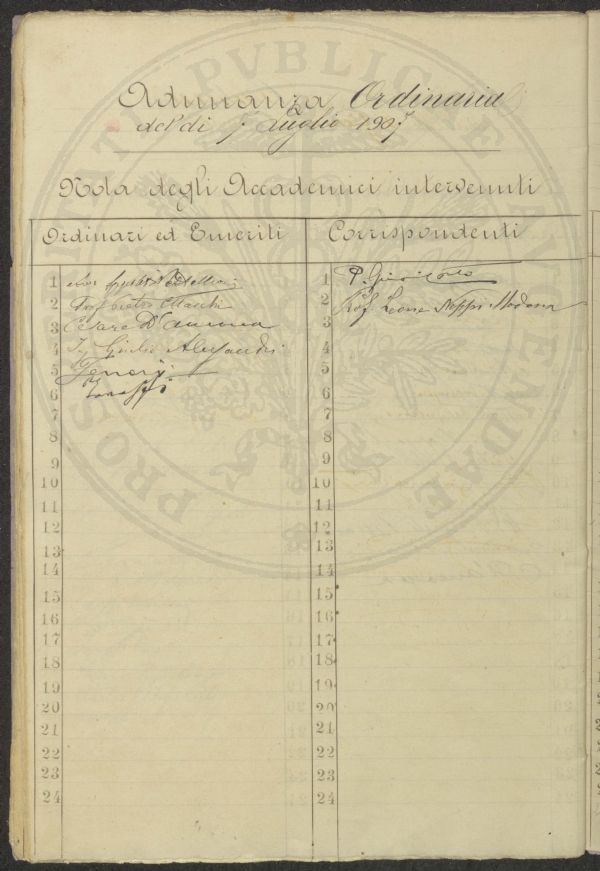 PROSPERITATI PVBLICAE AVGENDAE
Adunanza Ordinaria
del dì 7 Luglio 1907
Nota degli Accademici intervenuti
Ordinari ed Emeriti
Corrispondenti
1
2 Prof.
3 Cesare D'Ancona
4 Ing Giulio Alessandri
5
6
7
8
9
10
11
12
13
14
15
16
17
18
19
20
21
22
23
24
1 P.
2 Prof Leone Neppi Modona
3
4
5
6
7
8
9
10
11
12
13
14
15
16
17
18
19
20
21
22
23
24